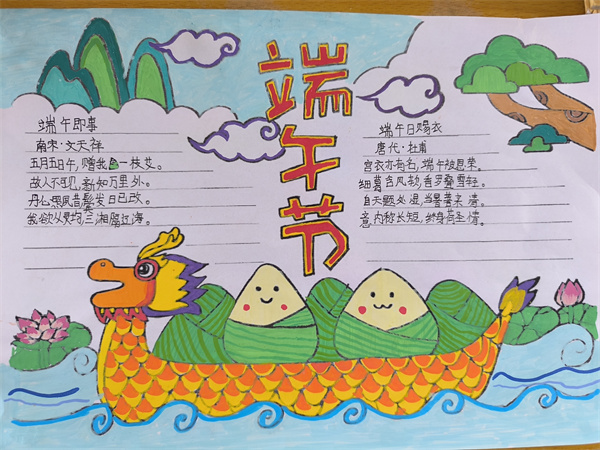 端午节
端午即事
南宋·文天祥
五月五日午,赠我一枝艾。
故人不可见,新知万里外。
丹心照夙昔,鬓发日已改。
我欲从灵均,三湘隔辽海。
端午日赐衣
唐代·杜甫
宫衣亦有名,端午被恩荣。
细葛含风软,香罗叠雪轻。
自天题处湿,当暑著来清。
意内称长短,终身荷圣情。